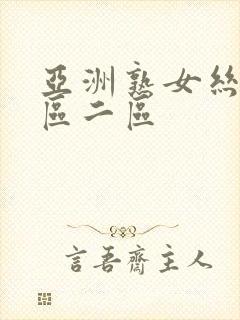 亞洲熟女絲
區二區
言吾齋主人